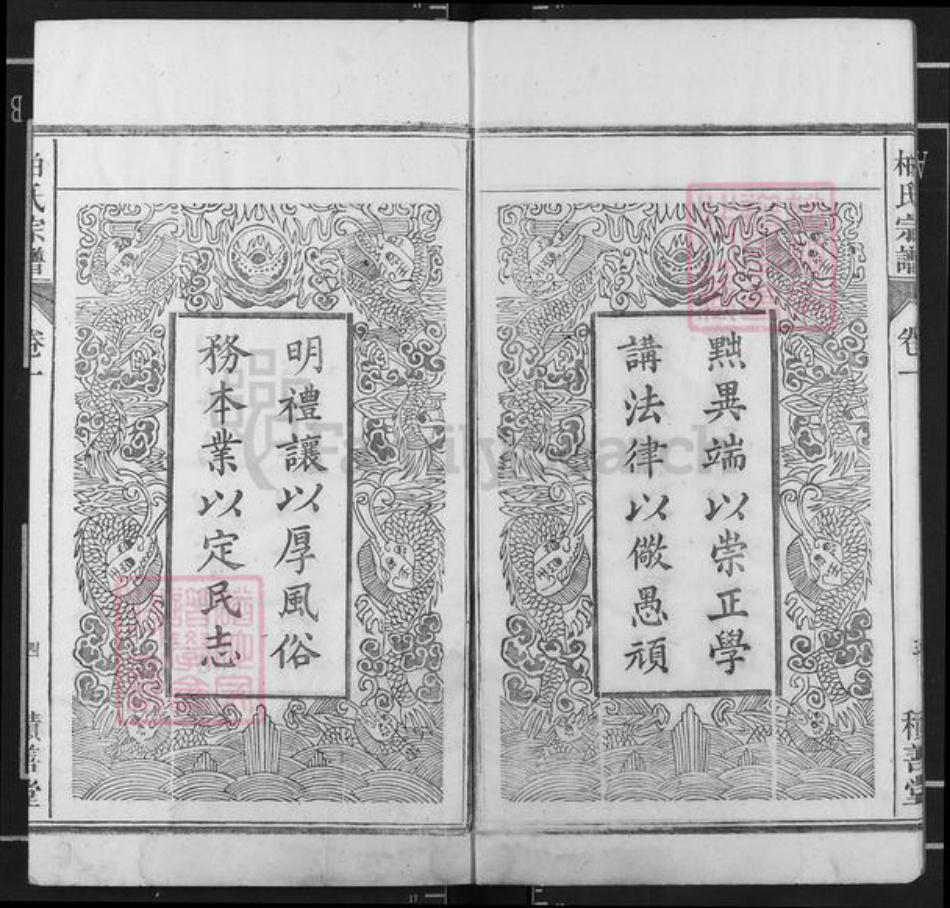 柏氏宗譜
卷一
積善堂
黜異端以崇正學
講法律以儆愚頑
明禮讓以厚風俗
務本業以定民志
柏氏宗譜
卷一
四
積善堂
FamilySearch
A
B